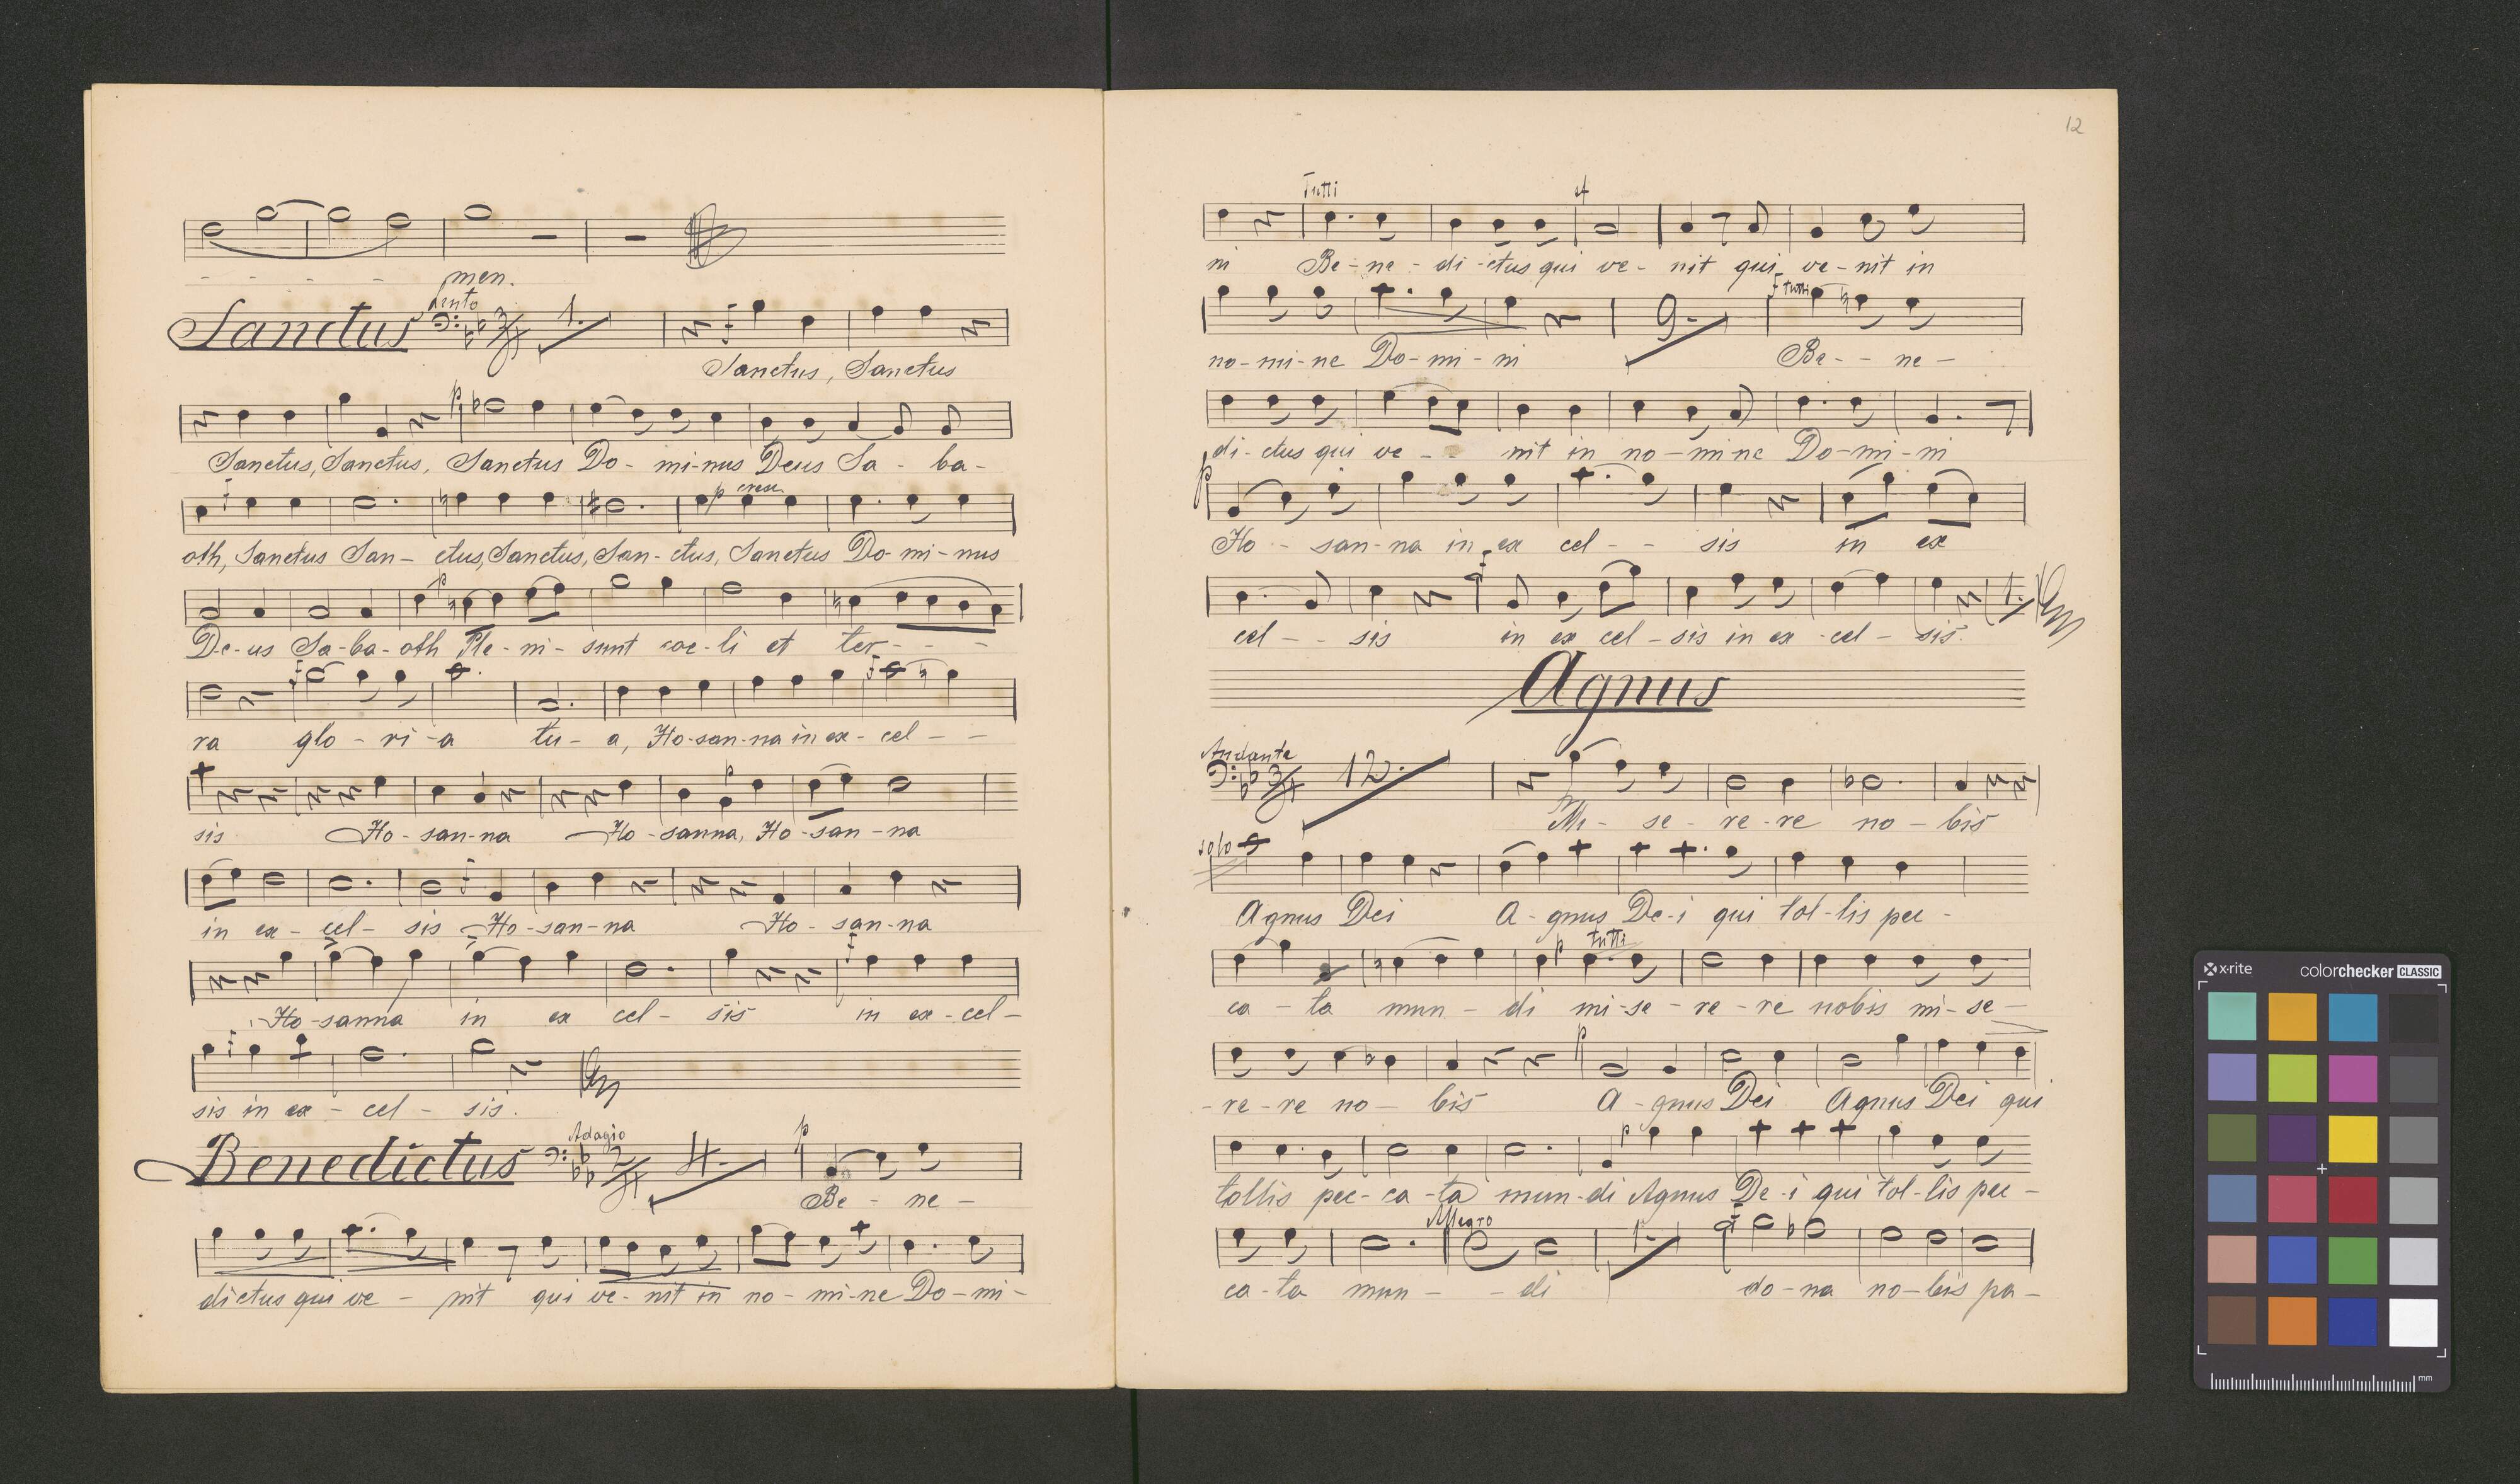 - - - - men.
Sanctus Lento 3/4 1.
f
Sanctus, Sanctus
p
Sanctus, Sanctus, Sanctus Do- mi-nus Deus Sa- ba-
f p cresc.
oth, Sanctus San- ctus, Sanctus, San- ctus, Sanctus Do- mi- nus
p
De-us Sa-ba-oth Ple-ni-sunt coe-li et ter- - -
f f
ra glo-ri-a tu-a, Ho-san-na in ex-cel- -
p
sis Ho-san-na Ho-sanna, Ho-san-na
f
in ex- cel- sis Ho-san-na Ho- san-na
f
Ho-sanna in ex cel- sis in ex-cel-
f
sis in ex- cel- sis.
Benedictus Adagio 2/4 4. p
Be- ne-
dictus qui ve- nit qui ve- nit in no- mi-ne Do-mi-
12
Tutti
ni Be-ne-di-ctus qui ve- nit qui ve-nit in
9. f tutti
no-mi-ne Do-mi-ni Be- - ne-
di-ctus qui ve- - nit in no-mi-ne Do-mi-ni
p
Ho- san-na in ex cel- - sis in ex
f
1.
cel- - sis in ex cel-sis in ex-cel- sis.
Agnus
Andante 3/4 12.
Mi- se- re-re no- bis
solo
Agnus Dei A-gnus De-i qui tol-lis pec-
p tutti
ca- ta mun- di mi-se-re-re nobis mi-se-
p
-re-re no- bis A-gnus Dei Agnus Dei qui
p
tollis pec-ca-ta mun-di Agnus De-i qui tol-lis pec-
Allegro 1. f
ca-ta mun- - di do-na no-bis pa-
x-rite colorchecker CLASSIC
mm